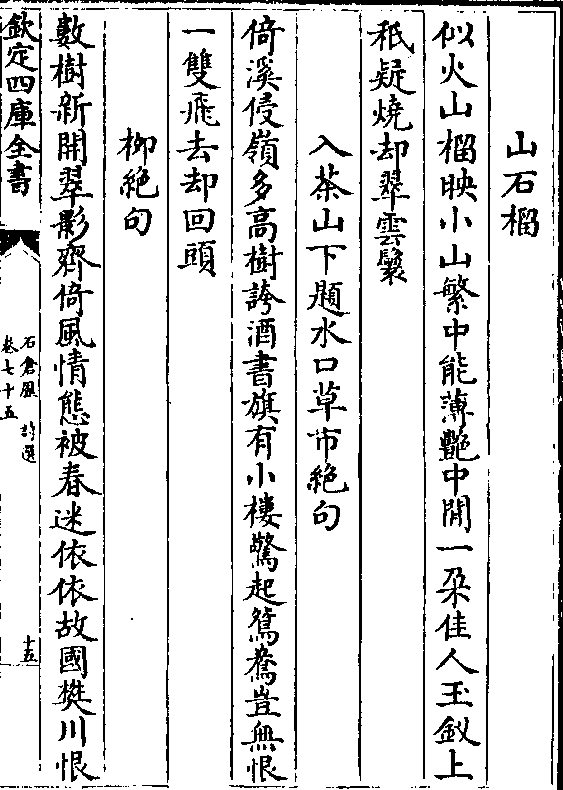 山石榴
似火山榴映小山繁中能薄艶中閒一朶佳人玉釵上
秖疑燒却翠雲鬟
入茶山下題水口草市絶句
倚溪侵嶺多高樹誇酒書旗有小樓驚起鴛鴦豈無恨
一雙飛去却回頭
柳絶句
數樹新開翠影齊倚風情態被春迷依依故國樊川恨
欽定四庫全書
石倉歷代詩選
卷七十五
十五